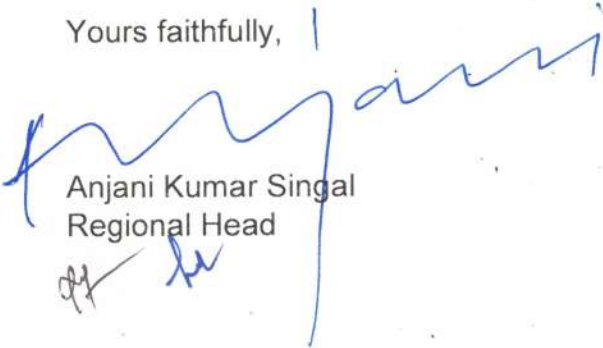 Yours faithfully,
Anjani
Anjani Kumar Singal
Regional Head